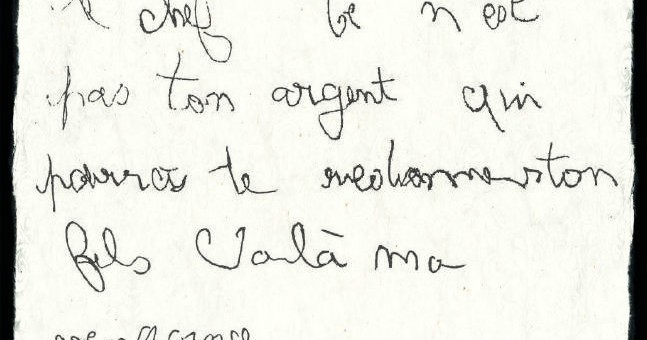 le chef Ce n est
pas ton argent qui
pourra te redonner ton
fils Voilà ma
vengeance